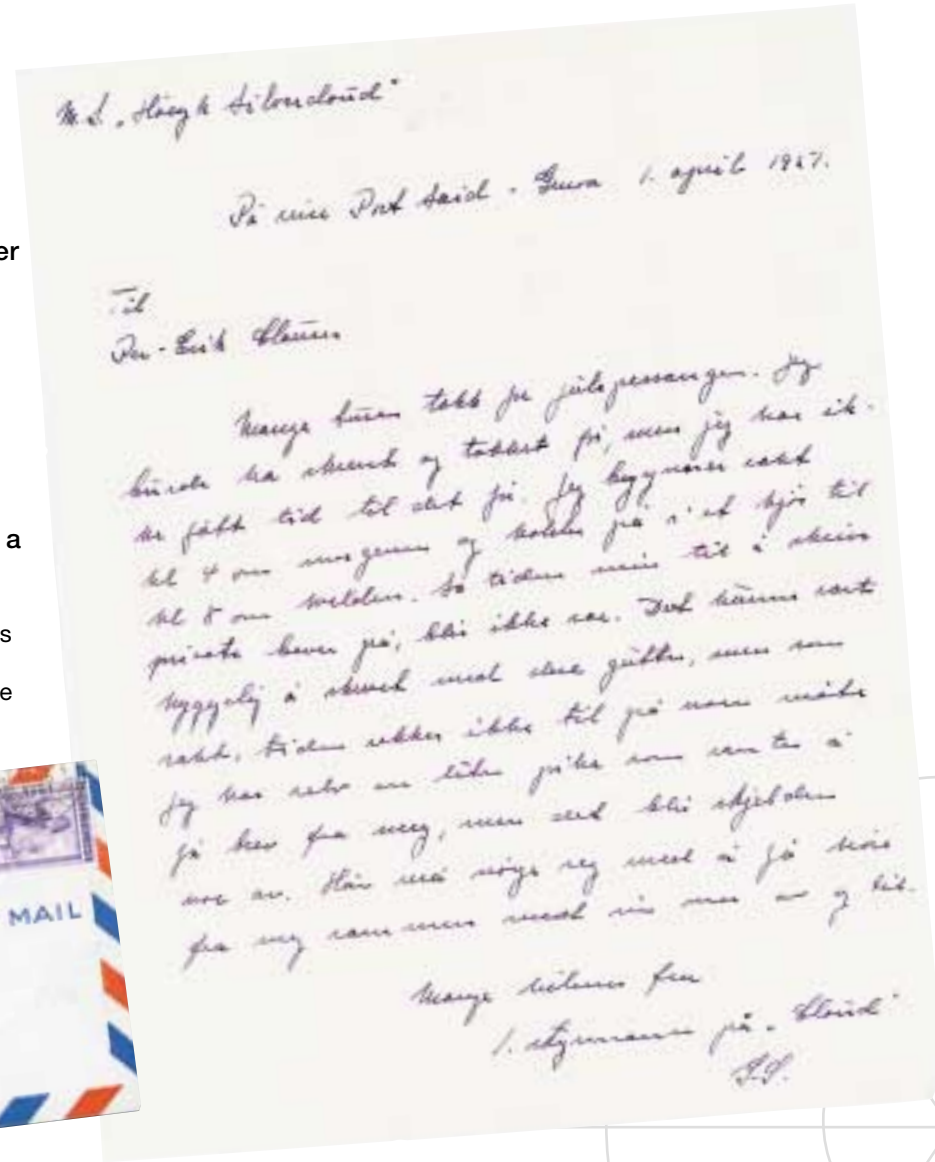 M.S. „Höegh Silvercloud"
På reise Port Said - Genoa 1. april 1957.
er
Til
Per-Erik
Mange tusen takk for julepressangen. Jeg
burde ha skrevet og takket før, men jeg har ik-
ke fått tid til det før. Jeg begynner
kl 4 om morgenen og holder på i et kjør til
a
kl 8 om kvelden. Så tiden min til å skrive
private brever på, blir ikke stor. Det kunne vært
s
hyggelig å skrevet med dere gutter, men som
e
sakt, tiden rekker ikke til på noen måte
Jeg har selv en liten pike som venter å
få brev fra meg, men det blir skjelden
noe av. Hun må nøye seg med å få høre
MAIL
fra meg sammen med min mor av og til.
Mange hilsener fra
1. styrmann på „Cloud"